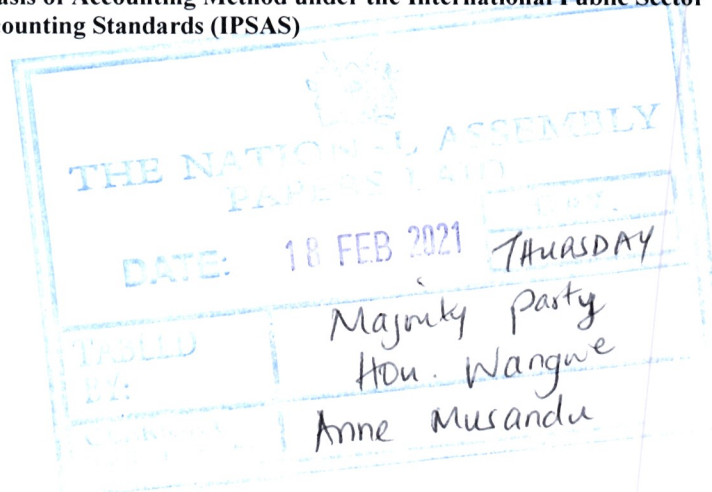 asis of Accounting Method under the International Public Sector
counting Standards (IPSAS)
THE NATIONAL ASSEMBLY
PAPERS LAID
DAY:
DATE: 18 FEB 2021 THURSDAY
TABLED
BY:
Majority Party
Hon. Wangwe
Anne Musandu